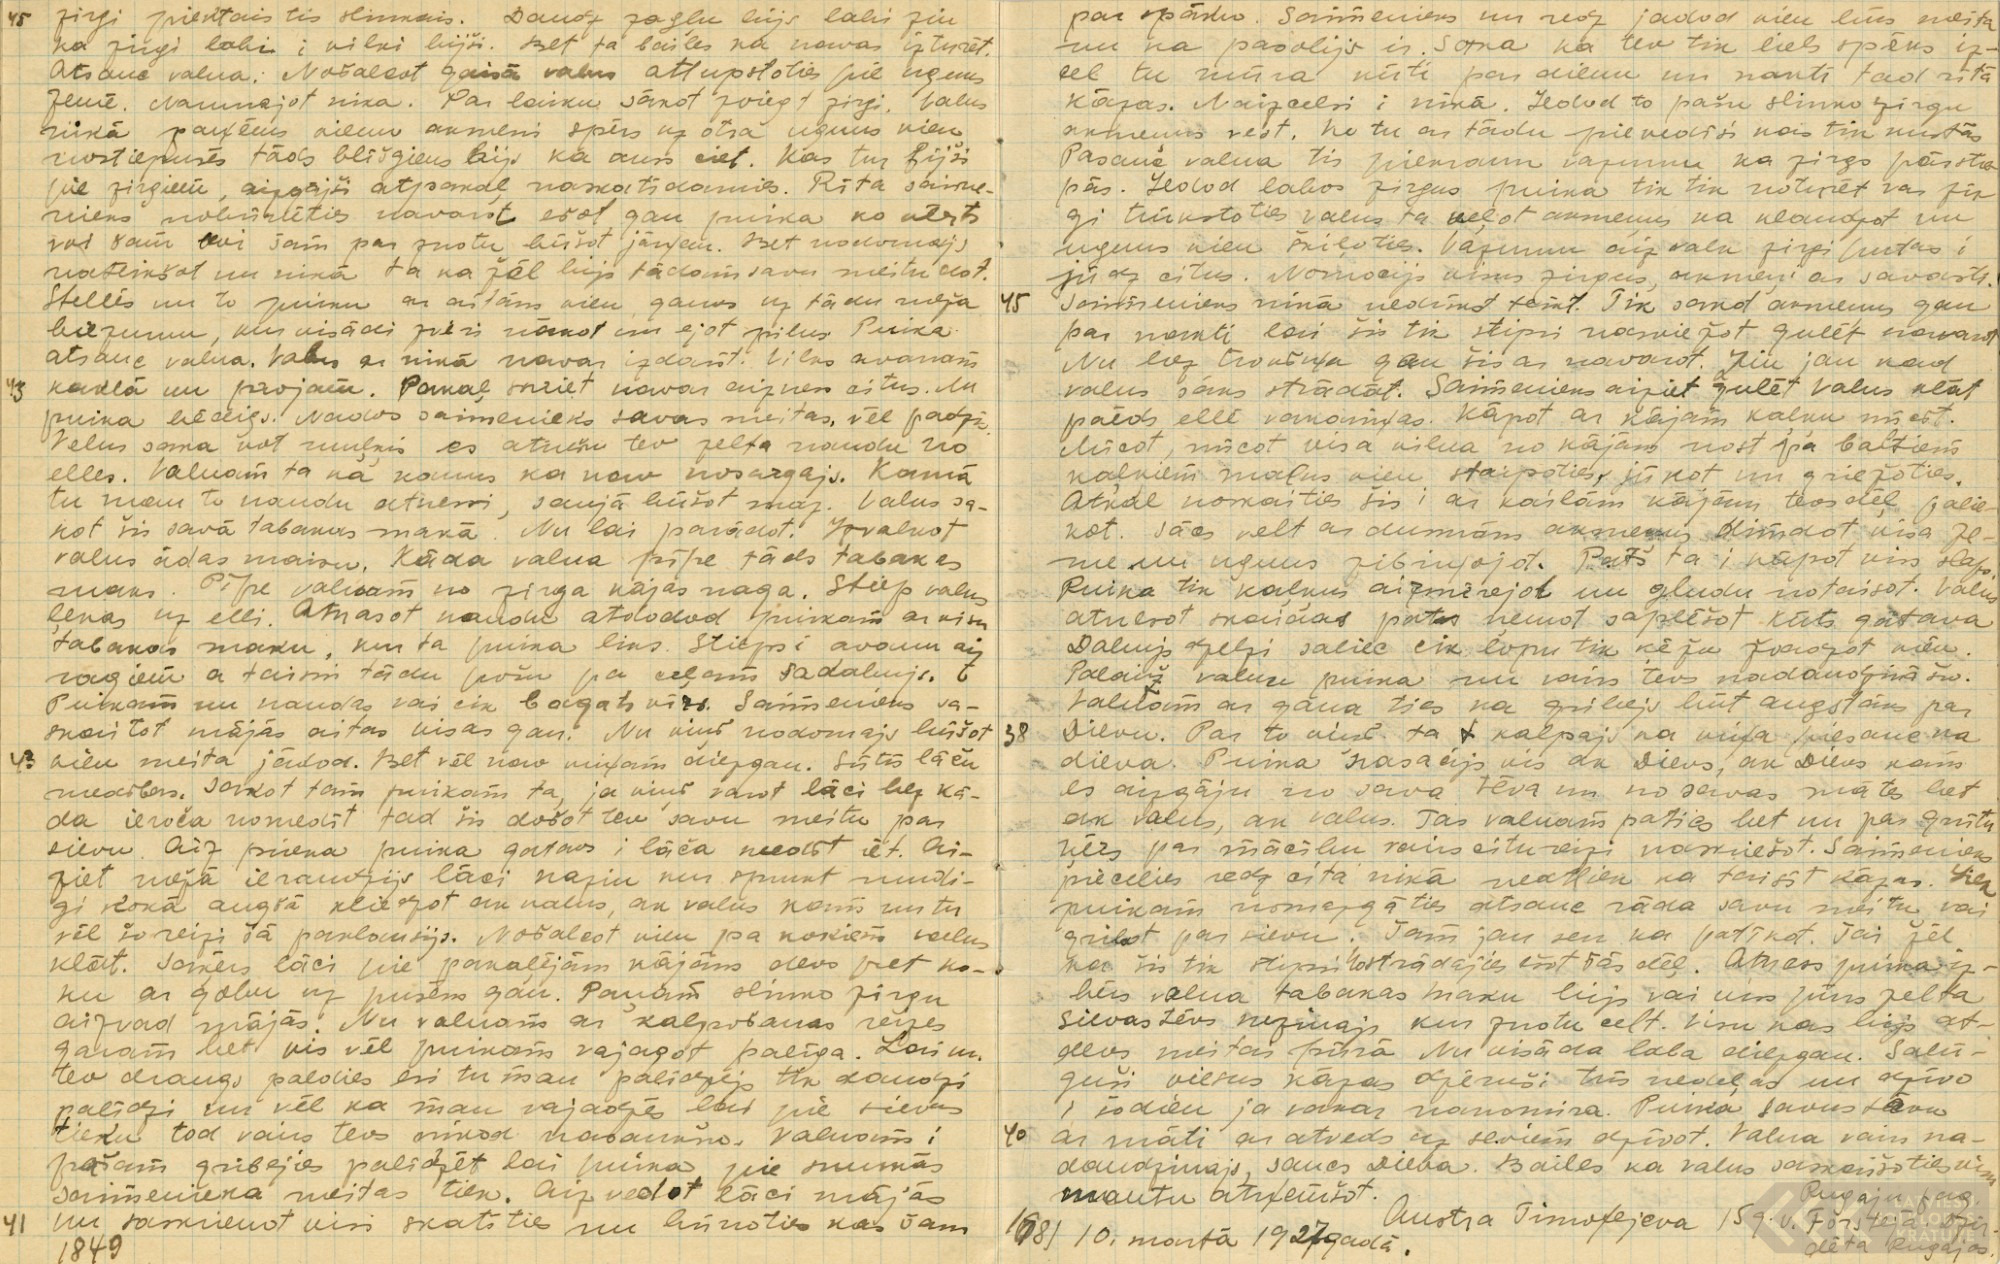 45 zirgi piektais tis slinkais. Daudz zagļu bijs labi ziu
ka zirgi labi i vilki bijši. Bet ta bailes ka navar izturēt.
Atsauc valna. Nošalcot gaisā valns atlupstoties pie uguns
zemē. Namurajot nika. Par laiku sākot zviegt zirgi. Valns
nikā paņēms vienu akmeni spērs uz otra uguns vien
nostiepusēs tāds blīšgiens bijs ka auss ciet. Kas tur bijši
pie zirgiem, aizgājši atpakaļ, naskatīdamies. Rīta saime-
nieks nobrīnīties navarot ešot gan puika ko vērts
vai šam par znotu būšot jāņem. Bet nodomājs
natikšot nu nikā ta ka žēl bijs tādam savu meitu dot.
Stellēs nu to puiku ar aitām vien ganos uz tādu meža
biezumu, kur visādi zvēri nākot un ejot pilns. Puika
atsauc valna. Valns ar nikā navar izdarīt. Vilks avanam
43 kaklā un projam. Pakaļ skriet navar aiznes citus. Nu
puika bēdīgs. Nados saimenieks savas meitas, vēl padzīs.
Velns saka vot muļķis es atnešu tev zelta naudu no
elles. Valnam ta kā kauns ka nav nosargājs. Kamā
tu man to naudu atnesi, saujā būšot maz. Valns sa-
kot šis savā tabakas makā. Nu lai parādot. Izvalkot
valns ādas maisu. Kāda valna pīpe tāds tabakas
maks. Pīpe valnam no zirga kājas naga. Stiep valns
lekas uz elli. Atnasot naudu atdodod puikam ar visu
tabakas maku, kur ta puika liks. Stieps i avanu aiz
ragiem a taisni tādu pošu pa ceļam sadabujs.
Puikam nu naudas vai cik bagats vīrs. Saimenieks sa-
skaitot mājās aitas visas gan. Nu viņš nodomājs būšot
43 vien meita jādod. Bet vēl nav viņam diezgan. Sūtīs lāču
medības. Sakot tam puikam ta, ja viņš varot lāci bez kā-
da ieroča nomedīt tad šis došot tev savu meitu par
sievu. Aiz prieka puika gatavs i lāča medīt iet. Ai-
ziet mežā ieraudzījs lāci nazin kur sprukt mudi-
gi kokā augšā kliedzot ak valns, ak valns kam nu tu
vēl šoreizi šā paklausijs. Nošalcot vien pa kokiem valns
klāt. Sakērs lāci pie pakaļējām kājām devs pret ko-
ku ar galvu uz pusēm gan. Paņam slinko zirgu
aizvad mājās. Nu valnam ar kalpošanas reizes
garam bet vis vēl puikam vajagot palīga. Lai nu.
tev draugs paldies esi tu man palīdzējs tik daudzi
palīdzi nu vēl ka man vajadzēs lai pie sievas
tieku tod vairs tevs nikod nasaukšu. Valnam i
pašam gribējies palīdzēt lai puika pie smukās
saimenieka meitas tiek. Aizvedot lāci mājās
41 nu saskrienot visi skatīties nu brīnoties kas šam
1849
par spāku. Saimenieks nu redz jadod vien būs meita
nu ka pasolijs ir. Saka ka tev tik liels spēks iz-
cel tu mūra kūti par dienu un nakti tad rītā
kāzas. Naizcelsi i nikā. Iedod to pašu slinko zirgu
akmeņus vest. Ko tu ar tādu pievedīsi kas tik kustās
Pasauc valna tis piekraun vazumu ka zirgs pārstie-
pās. Iedod labos zirgus puika tik tik noturēt var zir-
gi trūkstoties valns ta veļot akmeņus ka klaudzot un
uguns vien šķiļoties. Vazumu aizvalk zirgi putās i
jūdz citus. Nomocijs visus zirgus, akmeņi ar savasti.
45 Saimenieks nikā nedrīkst teikt. Tik sakot akmeņus gan
par nakti lai šis tik stipri naskiežot gulēt navarot
Nu bez trokšņa gan šis ar navarot. Zin jau kad
valns sāks strādāt. Saimenieks aiziet gulēt valns klāt
paēds ellē vakariņas. Kāpot ar kājam kaļķu mīcīt.
Mīcot, mīcot visa vilna no kājām nost pa baltiem
kaļķiem malns vien staipoties, jūkot un griežoties.
Atkal noskaities šis i ar kailām kājām tevs dēļ palie-
kot. Sācs velt ar dusmām akmeņus dimdot visa ze-
me nu uguns zibiņojot. Pats ta i kāpot viss slapš.
Puika tik kaļķus aizmērējot nu gludu notaisot. Valns
atnesot skaidas pats ņemot saplēšot Kūts gatava
Dabujs dzelzi saliec cik lopu tik ķēžu žvadzot vien.
Palaiž valnu puika nu vairs tevs nadaudzināšu.
Valnam ar gana ties ka gribejs būt augstāks par
38 Dievu. Par to viņš ta kalpajs ka viņa piesauc na
dieva. Puika nasacijs vis ak Dievs, ak Dievs kam
es aizgāju no sava tēva un no savas mātes bet
ak valns, ak valns. Tas valnam patics bet nu par grūtu
ķērs par mācību vairs citureizi naskriešot. Saimenieks
piecelies redz cita nikā neatliek ka taisīt kāzas. Liek
puikam nomazgāties atsauc rāda savu meitu vai
gribot par sievu. Tam jau sen ka patīkot. Tai žēl
ka šis tik stipri nostrādājies ešot šās dēļ. Atness puika iz-
bērs valna tabakas maku bijs vai viss pūrs zelta
sievastēvs nezinajs kur znotu celt. Visu kas bijs at-
devs meitas pūrā Nu visāda laba diezgan. Salū-
guši viesus kāzas dzēruši trīs nedēļas un dzīvo
i šodien ja vakar nanomira. Puika savus tēvu
40 ar māti ar atveds uz seviem dzīvot. Valna vairs na-
daudzinajs, saucs Dieva. Bailes ka valns saskaišoties visu
mantu atņemšot.
1681 10. martā 1927 gadā. Austra Timofejeva 15 g. v. Rugāju pag.